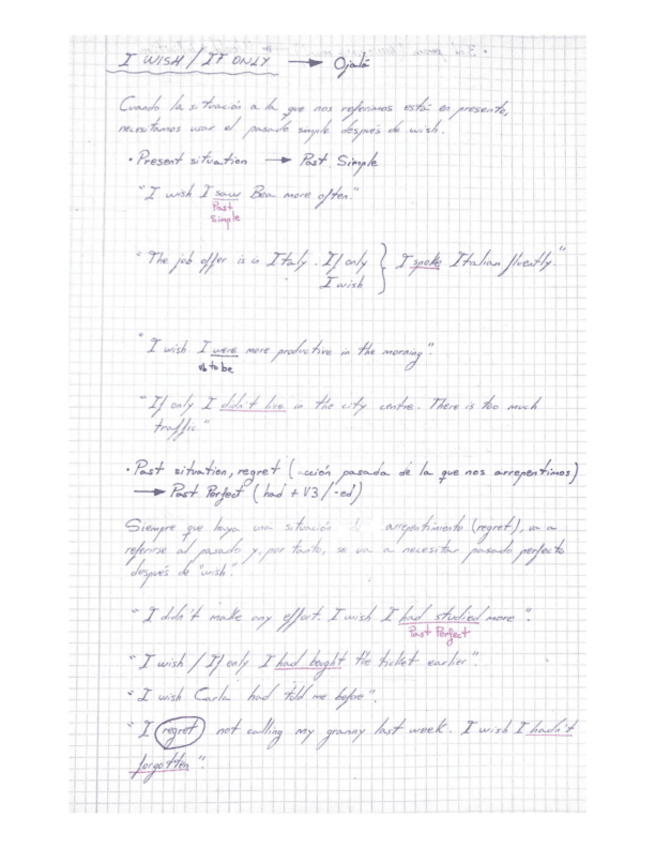 I WISH / IF ONLY → Ojalá
Cuando la situación a la que nos referimos está en presente,
necesitamos usar el pasado simple después de wish.
• Present situation → Past Simple
"I wish I saw Bea more often."
Past
Simple
"The job offer is in Italy. If only } I spoke Italian fluently."
I wish
"I wish I were more productive in the morning".
vb to be
"If only I didn't live in the city centre. There is too much
traffic"
• Past situation, regret (acción pasada de la que nos arrepentimos)
→ Past Perfect (had + V3/-ed)
Siempre que haya una situación de arrepentimiento (regret), va a
referirse al pasado y, por tanto, se va a necesitar pasado perfecto
después de "wish".
"I didn't make any effort. I wish I had studied more".
Past Perfect
"I wish / If only I had bought the ticket earlier".
"I wish Carla had told me before".
"I regret not calling my granny last week. I wish I hadn't
forgotten".